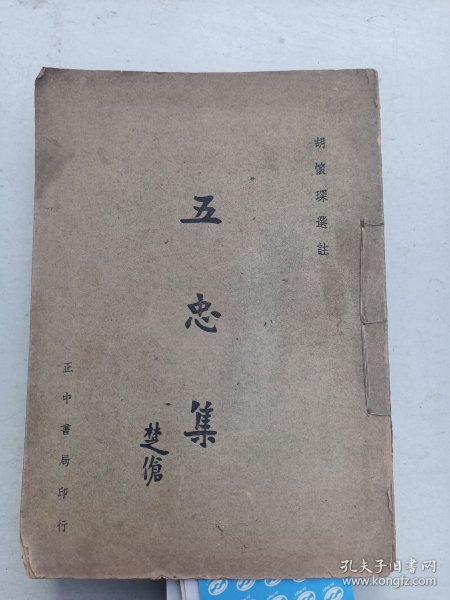 胡懷琛選註
五忠集
楚傖
正中書局印行
孔夫子旧书网
www.kongfz.com